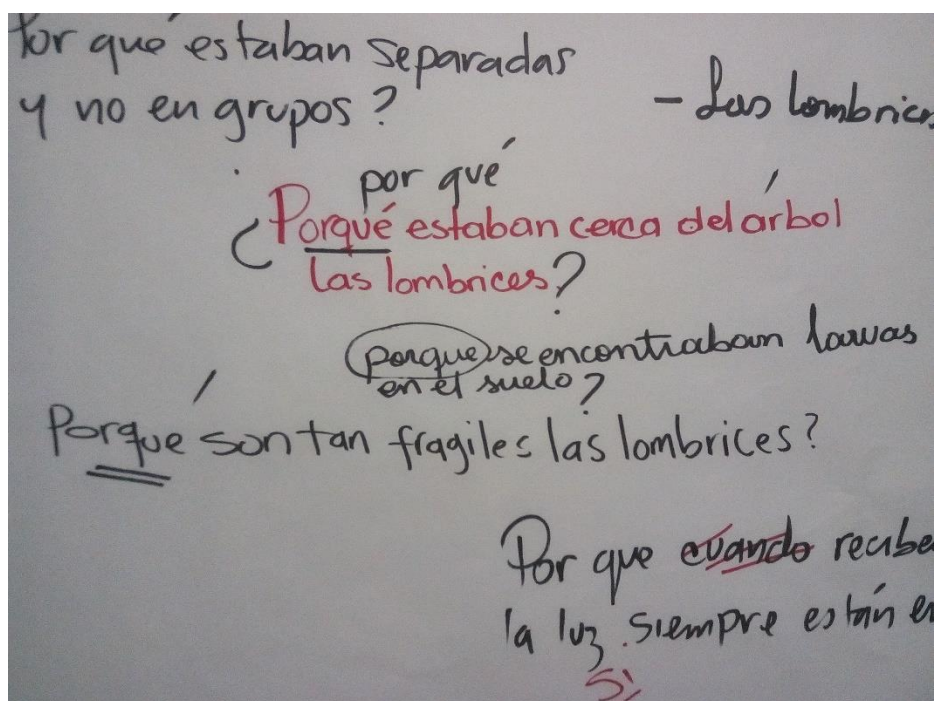 Por qué estaban separadas
y no en grupos?
- Las lombrices
por qué
¿Porqué estaban cerca del árbol
las lombrices?
porque se encontraban larvas
en el suelo?
Porqué son tan fragiles las lombrices?
Por que cuando reciben
la luz siempre están en
Si